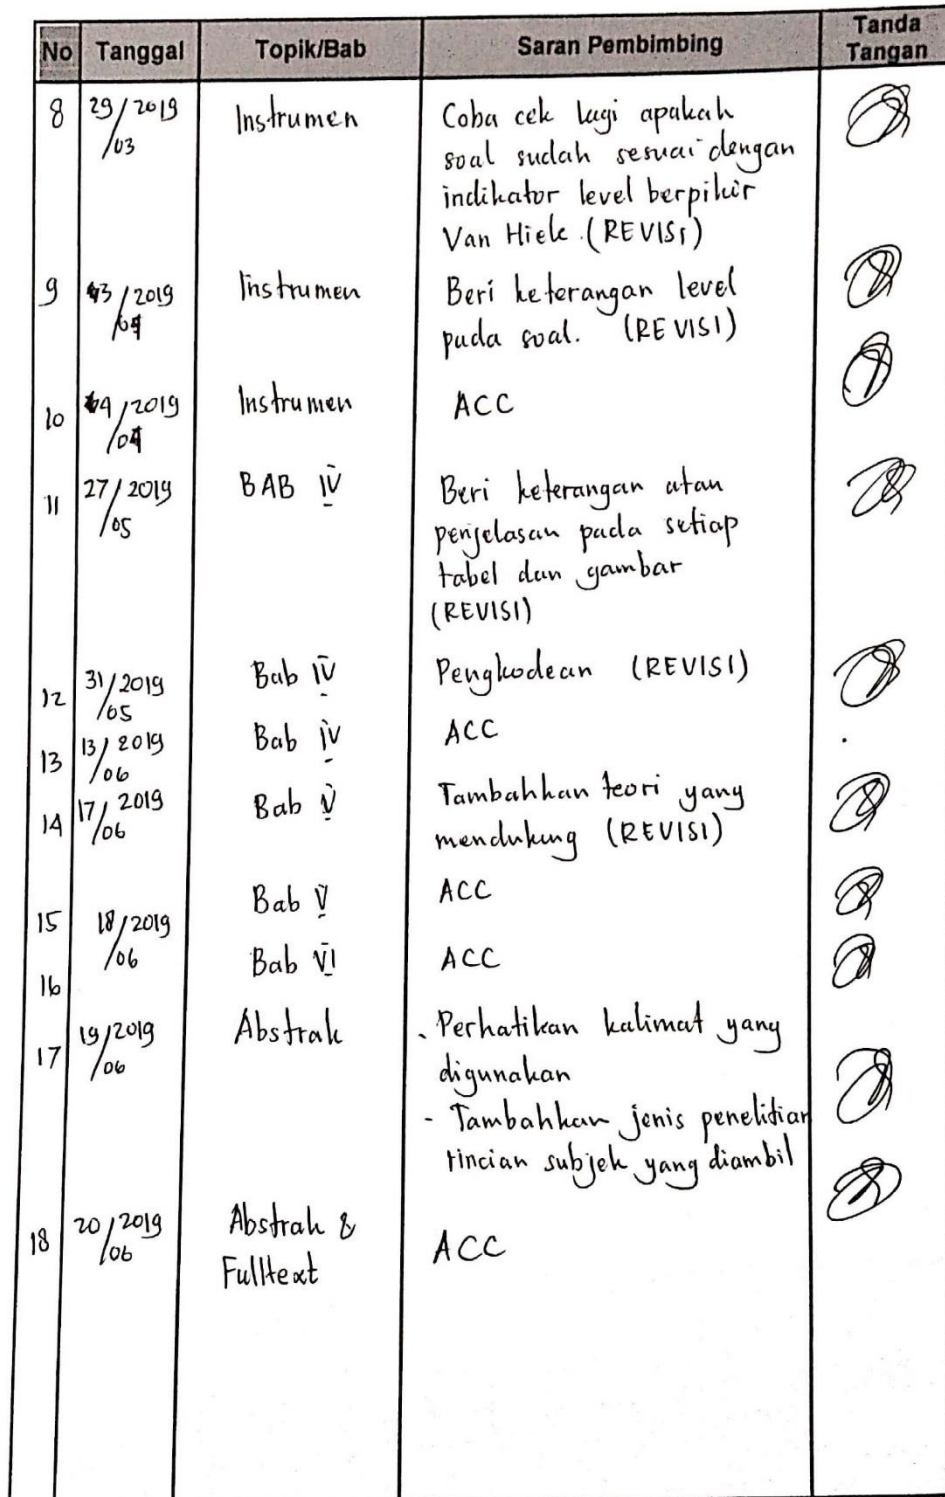 No Tanggal Topik/Bab Saran Pembimbing Tanda Tangan
8 29/2019 Instrumen Coba cek lagi apakah
/03 soal sudah sesuai dengan
indikator level berpikir
Van Hiele. (REVISI)
9 /2019 Instrumen Beri keterangan level
pada soal. (REVISI)
10 /2019 Instrumen ACC
11 27/2019 BAB IV Beri keterangan atau
/05 penjelasan pada setiap
tabel dan gambar
(REVISI)
12 31/2019 Bab IV Pengkodean (REVISI)
/05
13 13/2019 Bab IV ACC
/06
14 17/2019 Bab V Tambahkan teori yang
/06 mendukung (REVISI)
15 18/2019 Bab V ACC
/06
16 Bab VI ACC
17 19/2019 Abstrak - Perhatikan kalimat yang
/06 digunakan
- Tambahkan jenis penelitian
rincian subjek yang diambil
18 20/2019 Abstrak & ACC
/06
Fulltext